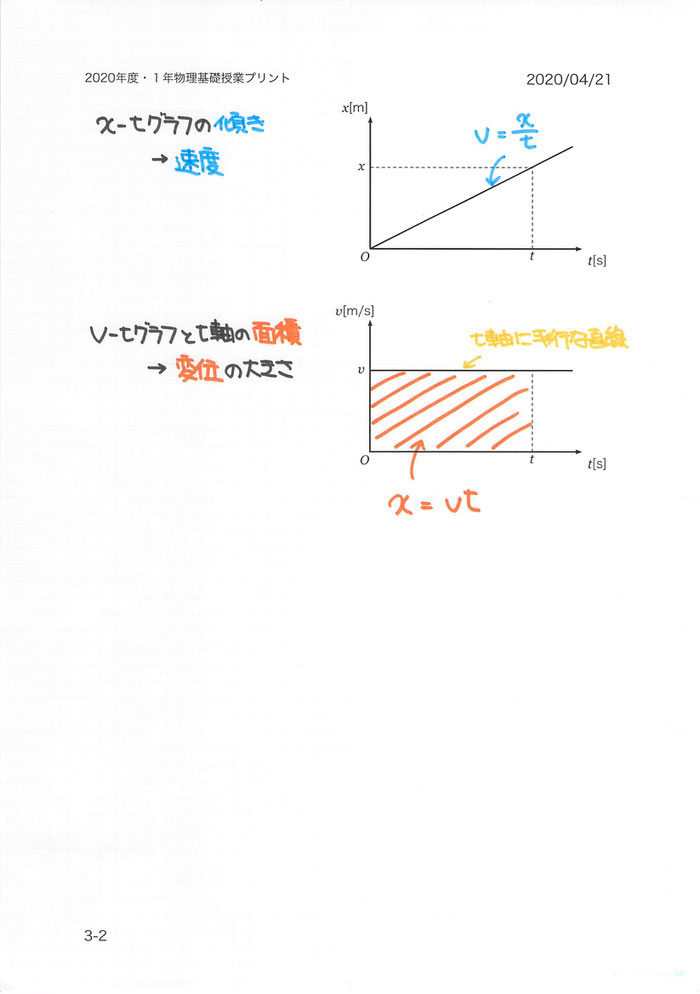 2020年度・1年物理基礎授業プリント
2020/04/21
x-tグラフの傾き
→ 速度
x[m]
v = x/t
x
O
t
t[s]
v-tグラフとt軸の面積
→ 変位の大きさ
v[m/s]
t軸に平行な直線
v
O
t
t[s]
x = vt
3-2